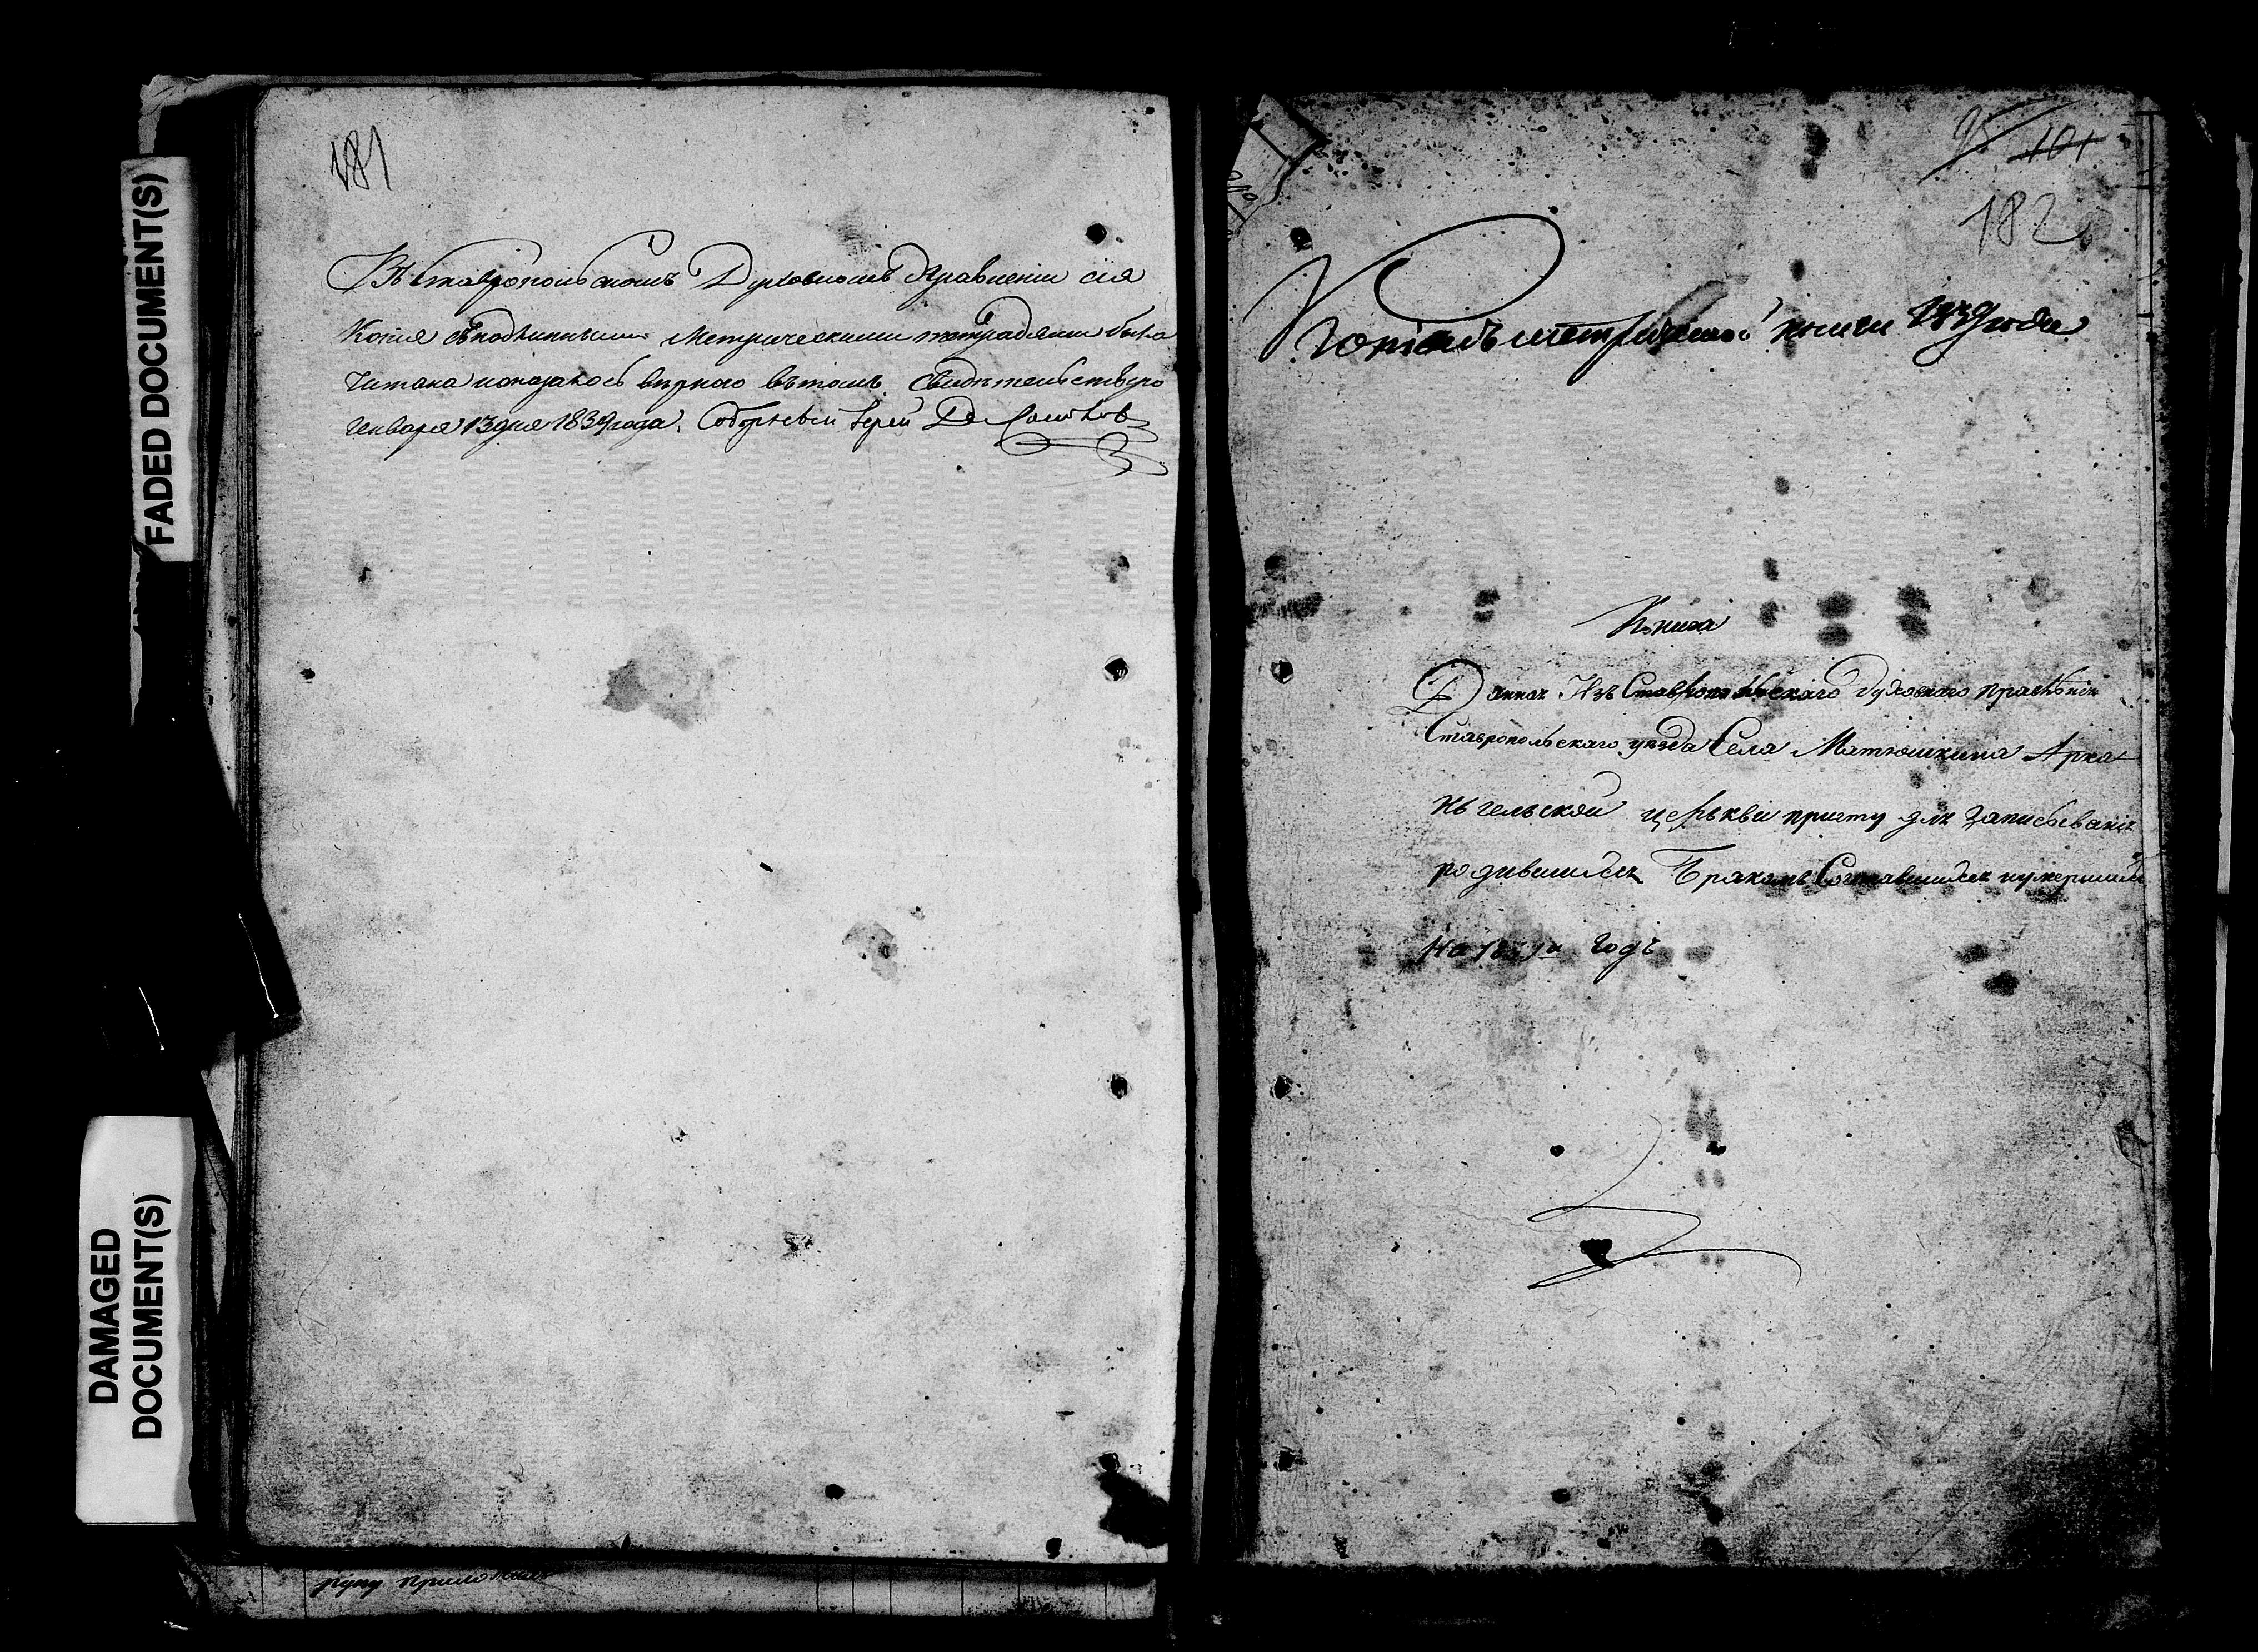 FADED DOCUMENT(S)
DAMAGED
DOCUMENT(S)
181
Въ Ставропольскомъ Духовномъ Правленіи сія
Копія съ подлинными Метрическими тетрадями была
читана и оказалось вѣрною въ томъ свидѣтельствую
Генваря 13 дня 1839 года. Соборный Іерей
руку приложилъ
95 101
182
Копія съ метрической книги 1839 года
Книга
Данная Изъ Ставропольскаго духовнаго правленія
Ставропольскаго уѣзда Села Матюшкина Арха
ньгельской церькви причту для записыванія
родившихся Бракомъ Сочтавшихся и умершихъ
На годъ